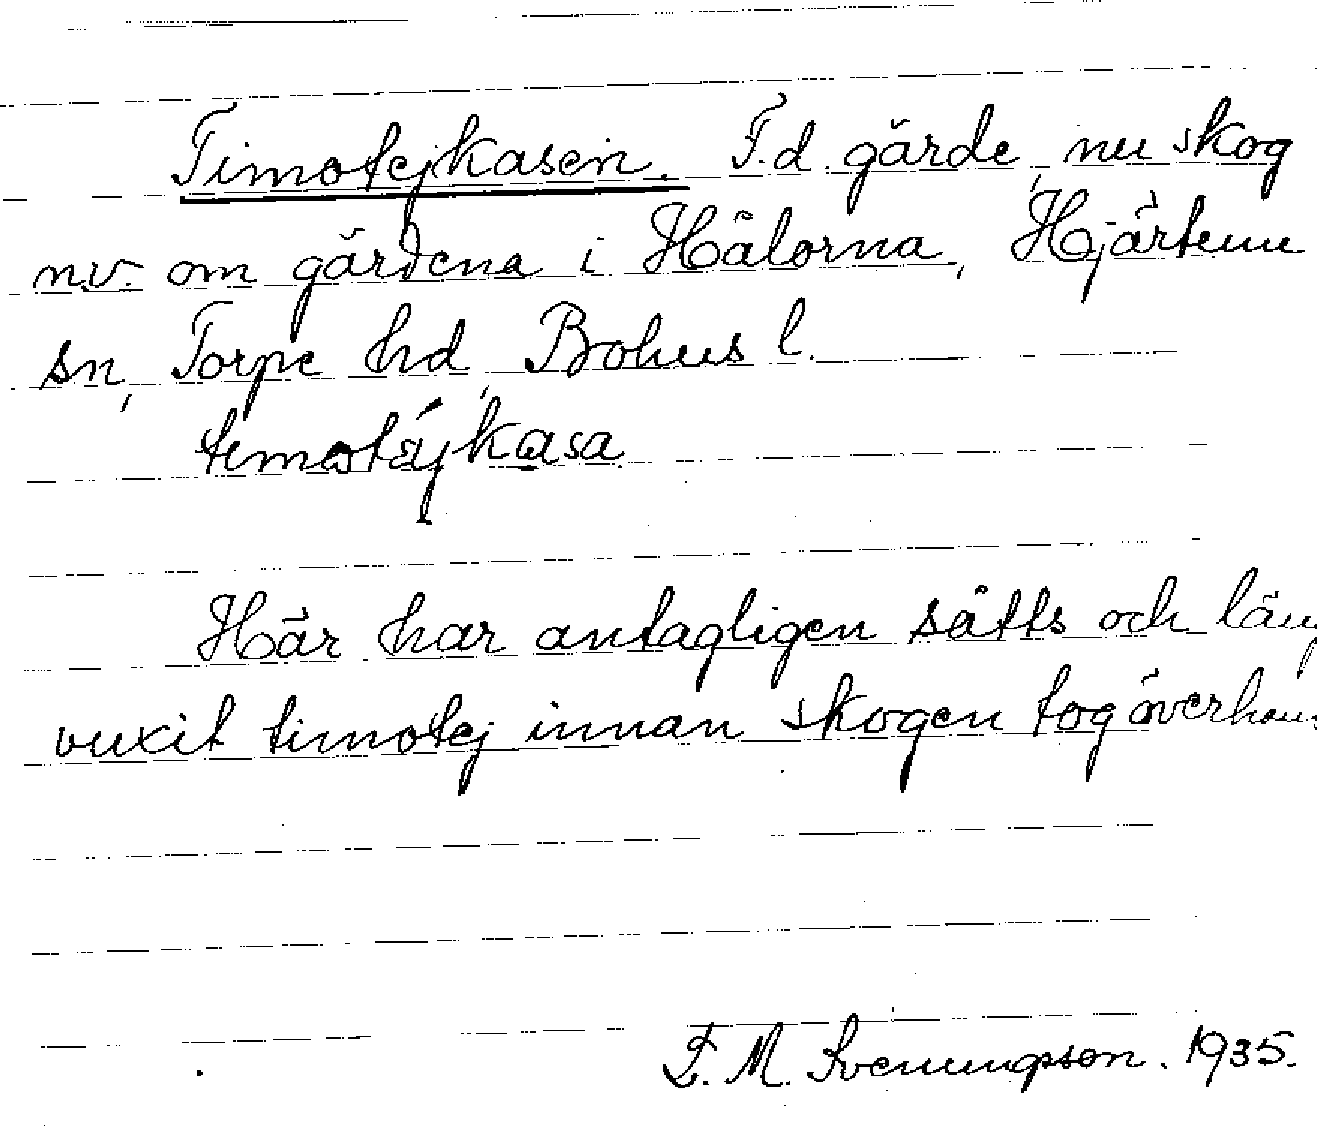 Timotejkasen. F.d. gärde, nu skog
n.v. om gårdena i Hålorna, Hjärtum
sn, Torpe hd, Bohus l.
timotäjkasa
Här har antagligen såtts och läng
vuxit timotej innan skogen tog överhan
E. M. Svenungsson. 1935.